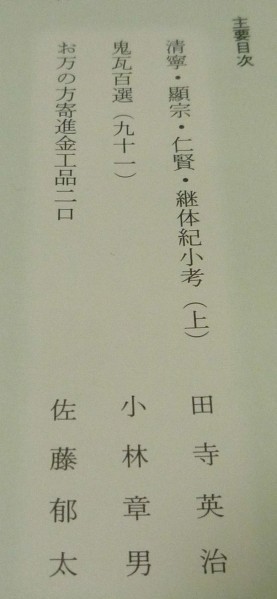 主要目次
清寧・顯宗・仁賢・継体紀小考（上）　田寺英治
鬼瓦百選（九十一）　小林章男
お万の方寄進金工品二口　佐藤郁太